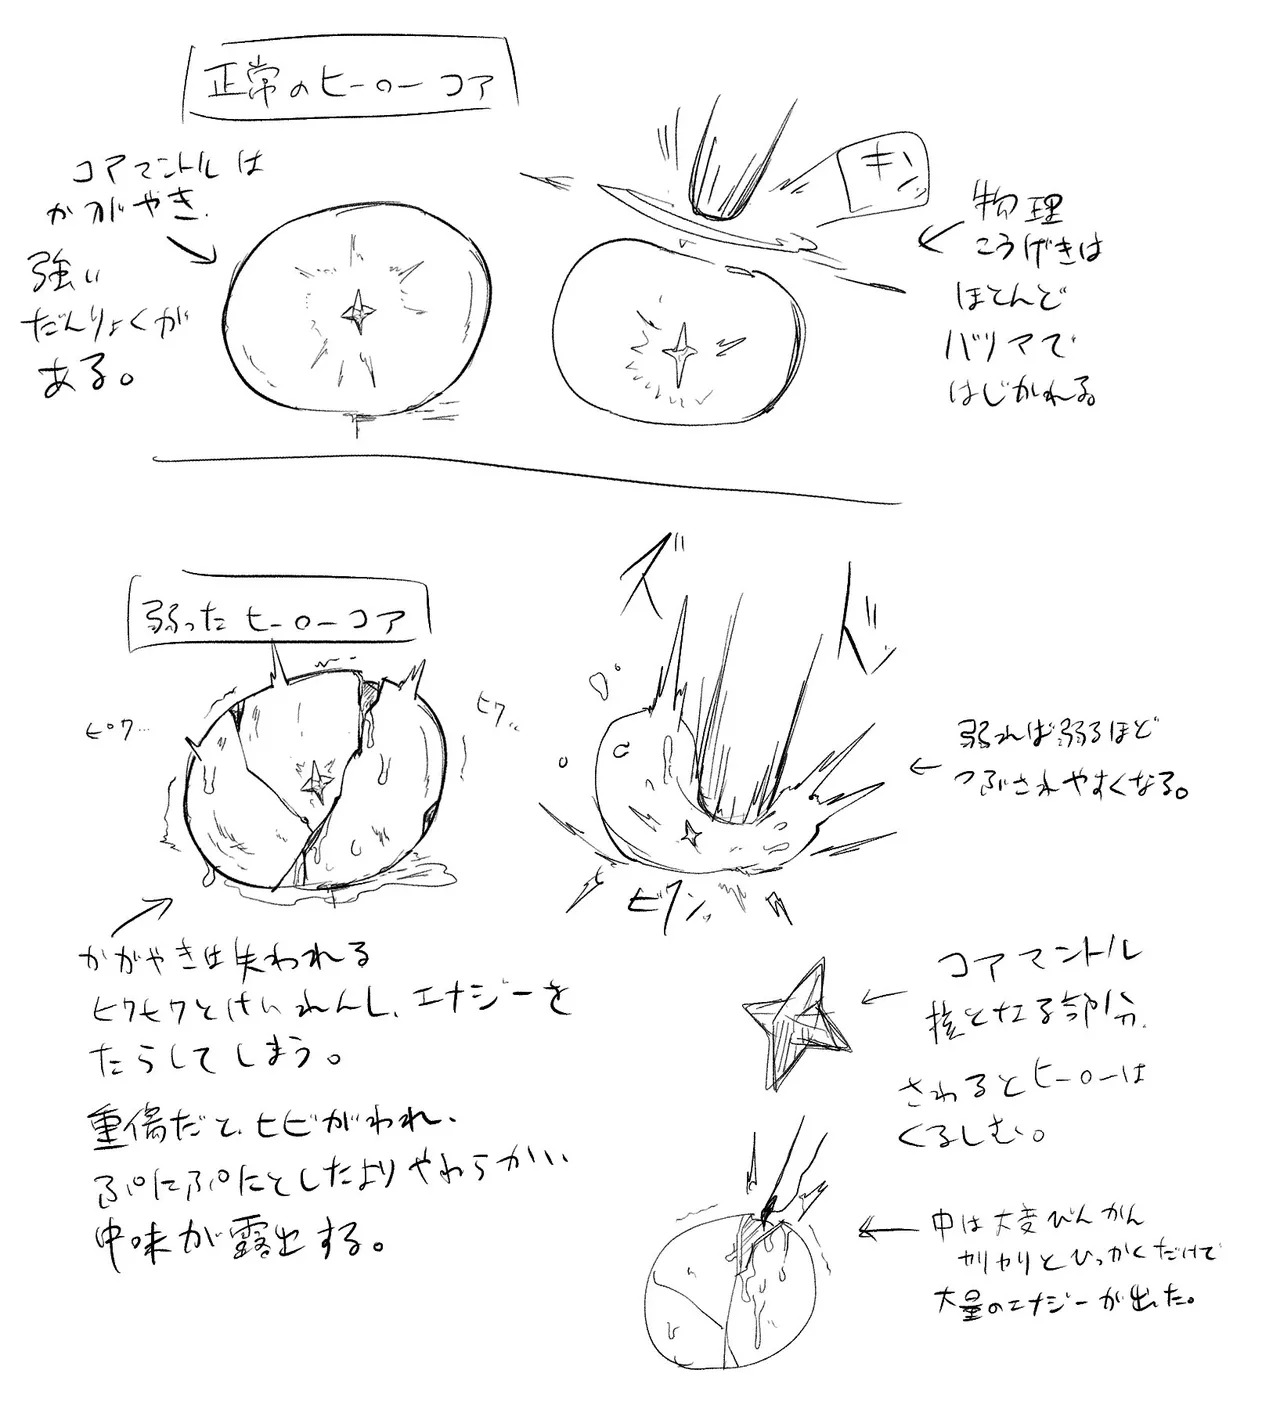 正常のヒーローコア
コアマントルは
かがやき、
強い
だんりょくが
ある。
キンッ
物理
こうげきは
ほとんど
バリアで
はじかれる
弱ったヒーローコア
ピクッ…
ヒクッ…
ズドッ
ビクンッ
弱れば弱るほど
つぶされやすくなる。
かがやきは失われる
ヒクヒクとけいれんし、エナジーを
たらしてしまう。
重傷だと、ヒビがわれ、
ぷにぷにとしたよりやわらかい
中味が露出する。
コアマントル
核となる部分。
さわるとヒーローは
くるしむ。
中は大変びんかん
カリカリとひっかくだけで
大量のエナジーが出た。